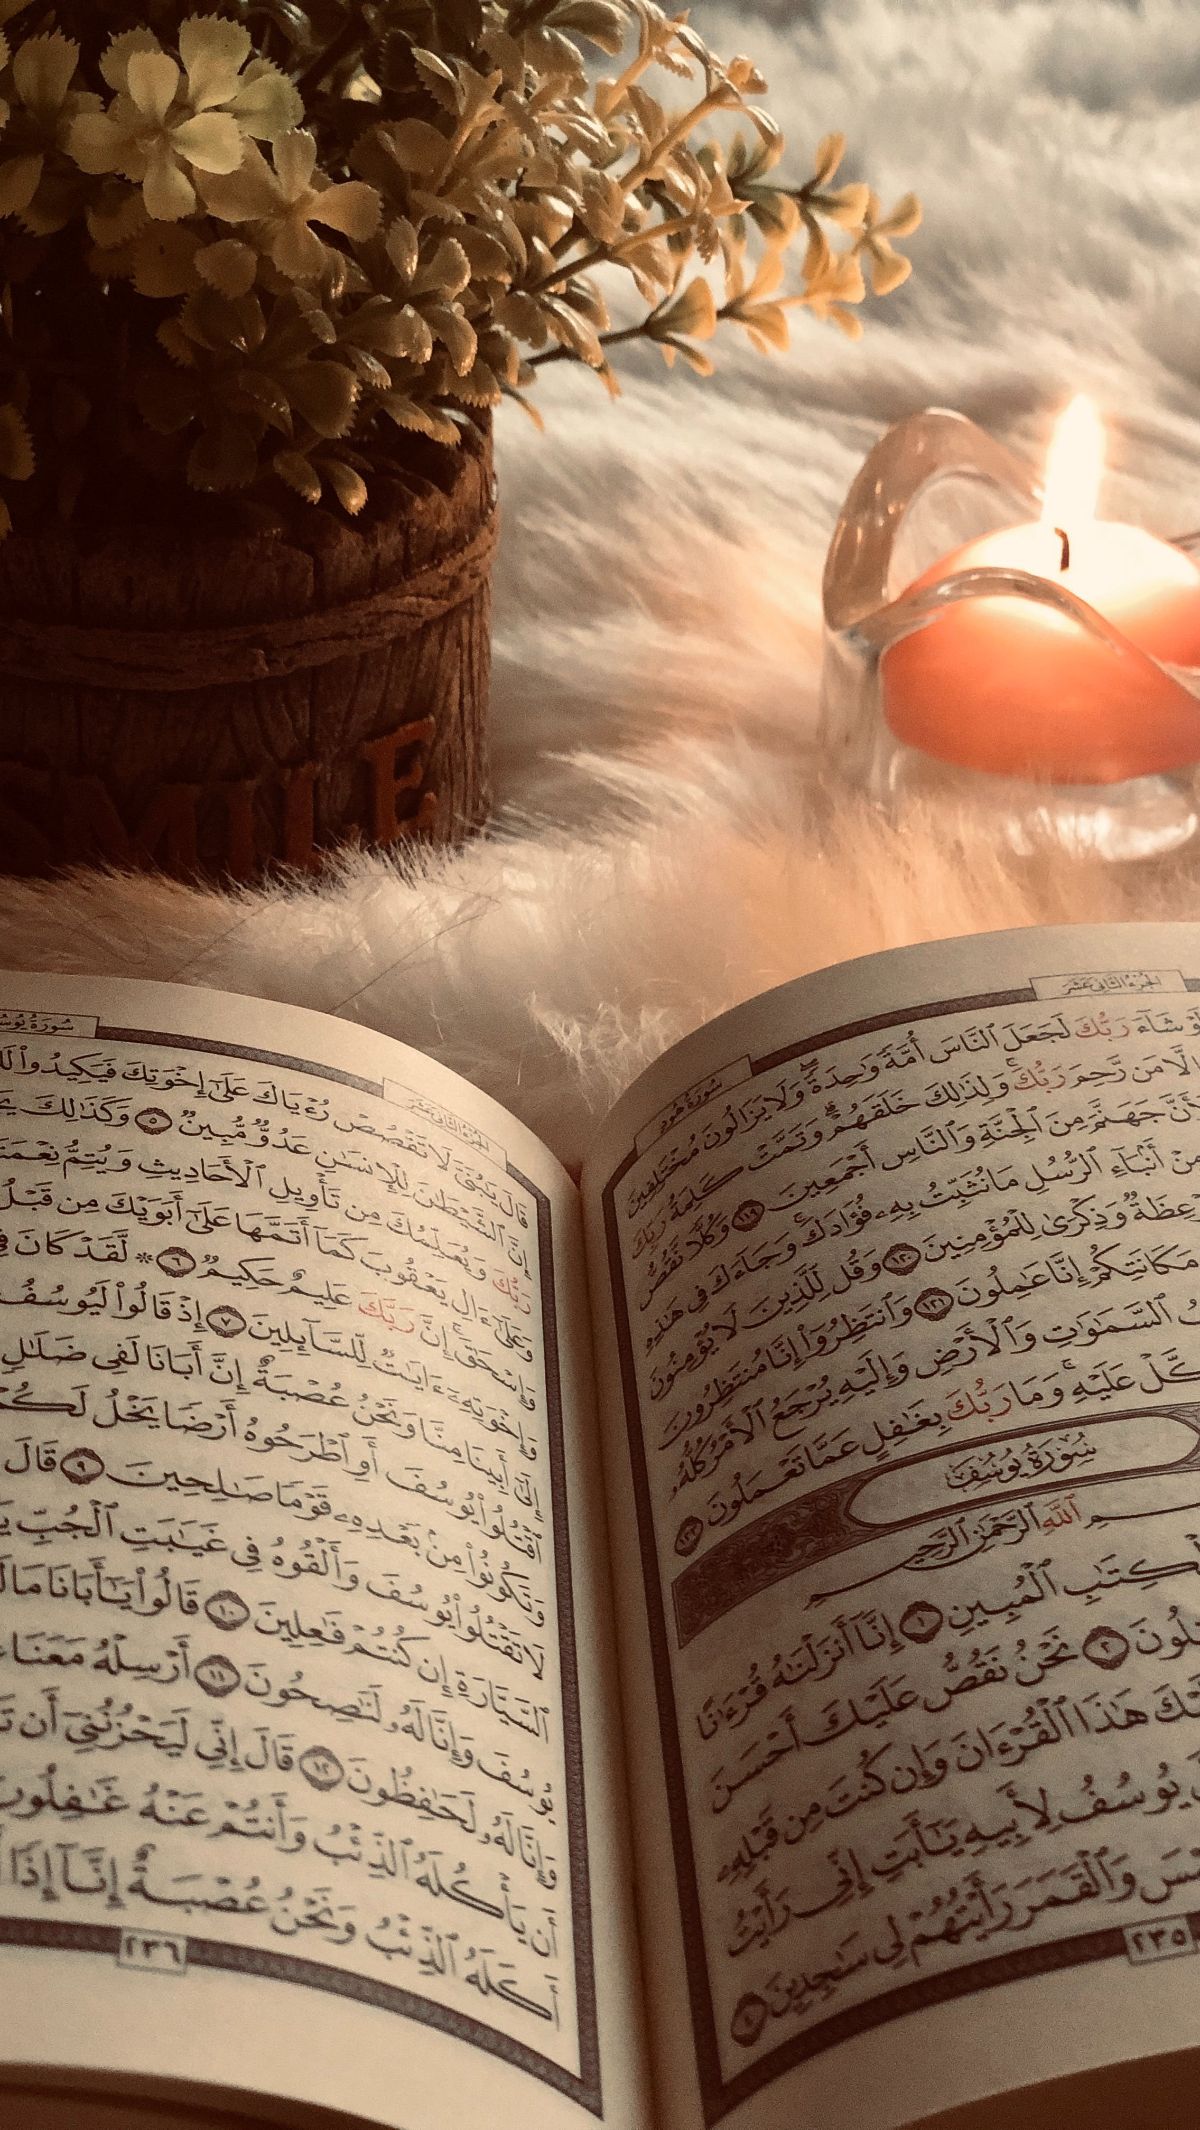 SMILE
الجزء الثاني عشر
سورة هود
شَآءَ رَبُّكَ لَجَعَلَ ٱلنَّاسَ أُمَّةً وَٰحِدَةً وَلَا يَزَالُونَ مُخْتَلِفِينَ
إِلَّا مَن رَّحِمَ رَبُّكَ وَلِذَٰلِكَ خَلَقَهُمْ وَتَمَّتْ كَلِمَةُ رَبِّكَ
جَهَنَّمَ مِنَ ٱلْجِنَّةِ وَٱلنَّاسِ أَجْمَعِينَ ١١٩ وَكُلًّا نَّقُصُّ
مِنْ أَنۢبَآءِ ٱلرُّسُلِ مَا نُثَبِّتُ بِهِۦ فُؤَادَكَ وَجَآءَكَ فِى هَٰذِهِ
وَذِكْرَىٰ لِلْمُؤْمِنِينَ ١٢٠ وَقُل لِّلَّذِينَ لَا يُؤْمِنُونَ
مَكَانَتِكُمْ إِنَّا عَٰمِلُونَ ١٢١ وَٱنتَظِرُوٓا۟ إِنَّا مُنتَظِرُونَ
ٱلسَّمَٰوَٰتِ وَٱلْأَرْضِ وَإِلَيْهِ يُرْجَعُ ٱلْأَمْرُ كُلُّهُۥ
عَلَيْهِ وَمَا رَبُّكَ بِغَٰفِلٍ عَمَّا تَعْمَلُونَ ١٢٣
سُورَةُ يُوسُفَ
ٱللَّهِ ٱلرَّحْمَٰنِ ٱلرَّحِيمِ
ٱلْكِتَٰبِ ٱلْمُبِينِ ١ إِنَّآ أَنزَلْنَٰهُ قُرْءَٰنًا
٢ نَحْنُ نَقُصُّ عَلَيْكَ أَحْسَنَ
هَٰذَا ٱلْقُرْءَانَ وَإِن كُنتَ مِن قَبْلِهِۦ
يُوسُفُ لِأَبِيهِ يَٰٓأَبَتِ إِنِّى رَأَيْتُ
وَٱلْقَمَرَ رَأَيْتُهُمْ لِى سَٰجِدِينَ ٤
٢٣٥
الجزء الثاني عشر
قَالَ يَٰبُنَىَّ لَا تَقْصُصْ رُءْيَاكَ عَلَىٰٓ إِخْوَتِكَ فَيَكِيدُوا۟
إِنَّ ٱلشَّيْطَٰنَ لِلْإِنسَٰنِ عَدُوٌّ مُّبِينٌ ٥ وَكَذَٰلِكَ
رَبُّكَ وَيُعَلِّمُكَ مِن تَأْوِيلِ ٱلْأَحَادِيثِ وَيُتِمُّ
ءَالِ يَعْقُوبَ كَمَآ أَتَمَّهَا عَلَىٰٓ أَبَوَيْكَ مِن قَبْلُ
إِنَّ رَبَّكَ عَلِيمٌ حَكِيمٌ ٦ ۞ لَّقَدْ كَانَ
ءَايَٰتٌ لِّلسَّآئِلِينَ ٧ إِذْ قَالُوا۟ لَيُوسُفُ
مِنَّا وَنَحْنُ عُصْبَةٌ إِنَّ أَبَانَا لَفِى ضَلَٰلٍ
يُوسُفَ أَوِ ٱطْرَحُوهُ أَرْضًا يَخْلُ
مِنۢ بَعْدِهِۦ قَوْمًا صَٰلِحِينَ ٩ قَالَ
لَا تَقْتُلُوا۟ يُوسُفَ وَأَلْقُوهُ فِى غَيَٰبَتِ ٱلْجُبِّ
ٱلسَّيَّارَةِ إِن كُنتُمْ فَٰعِلِينَ ١٠ قَالُوا۟ يَٰٓأَبَانَا مَا
وَإِنَّا لَهُۥ لَنَٰصِحُونَ ١١ أَرْسِلْهُ مَعَنَا
وَإِنَّا لَهُۥ لَحَٰفِظُونَ ١٢ قَالَ إِنِّى لَيَحْزُنُنِىٓ أَن
يَأْكُلَهُ ٱلذِّئْبُ وَأَنتُمْ عَنْهُ غَٰفِلُونَ
أَكَلَهُ ٱلذِّئْبُ وَنَحْنُ عُصْبَةٌ إِنَّآ إِذًا
٢٣٦